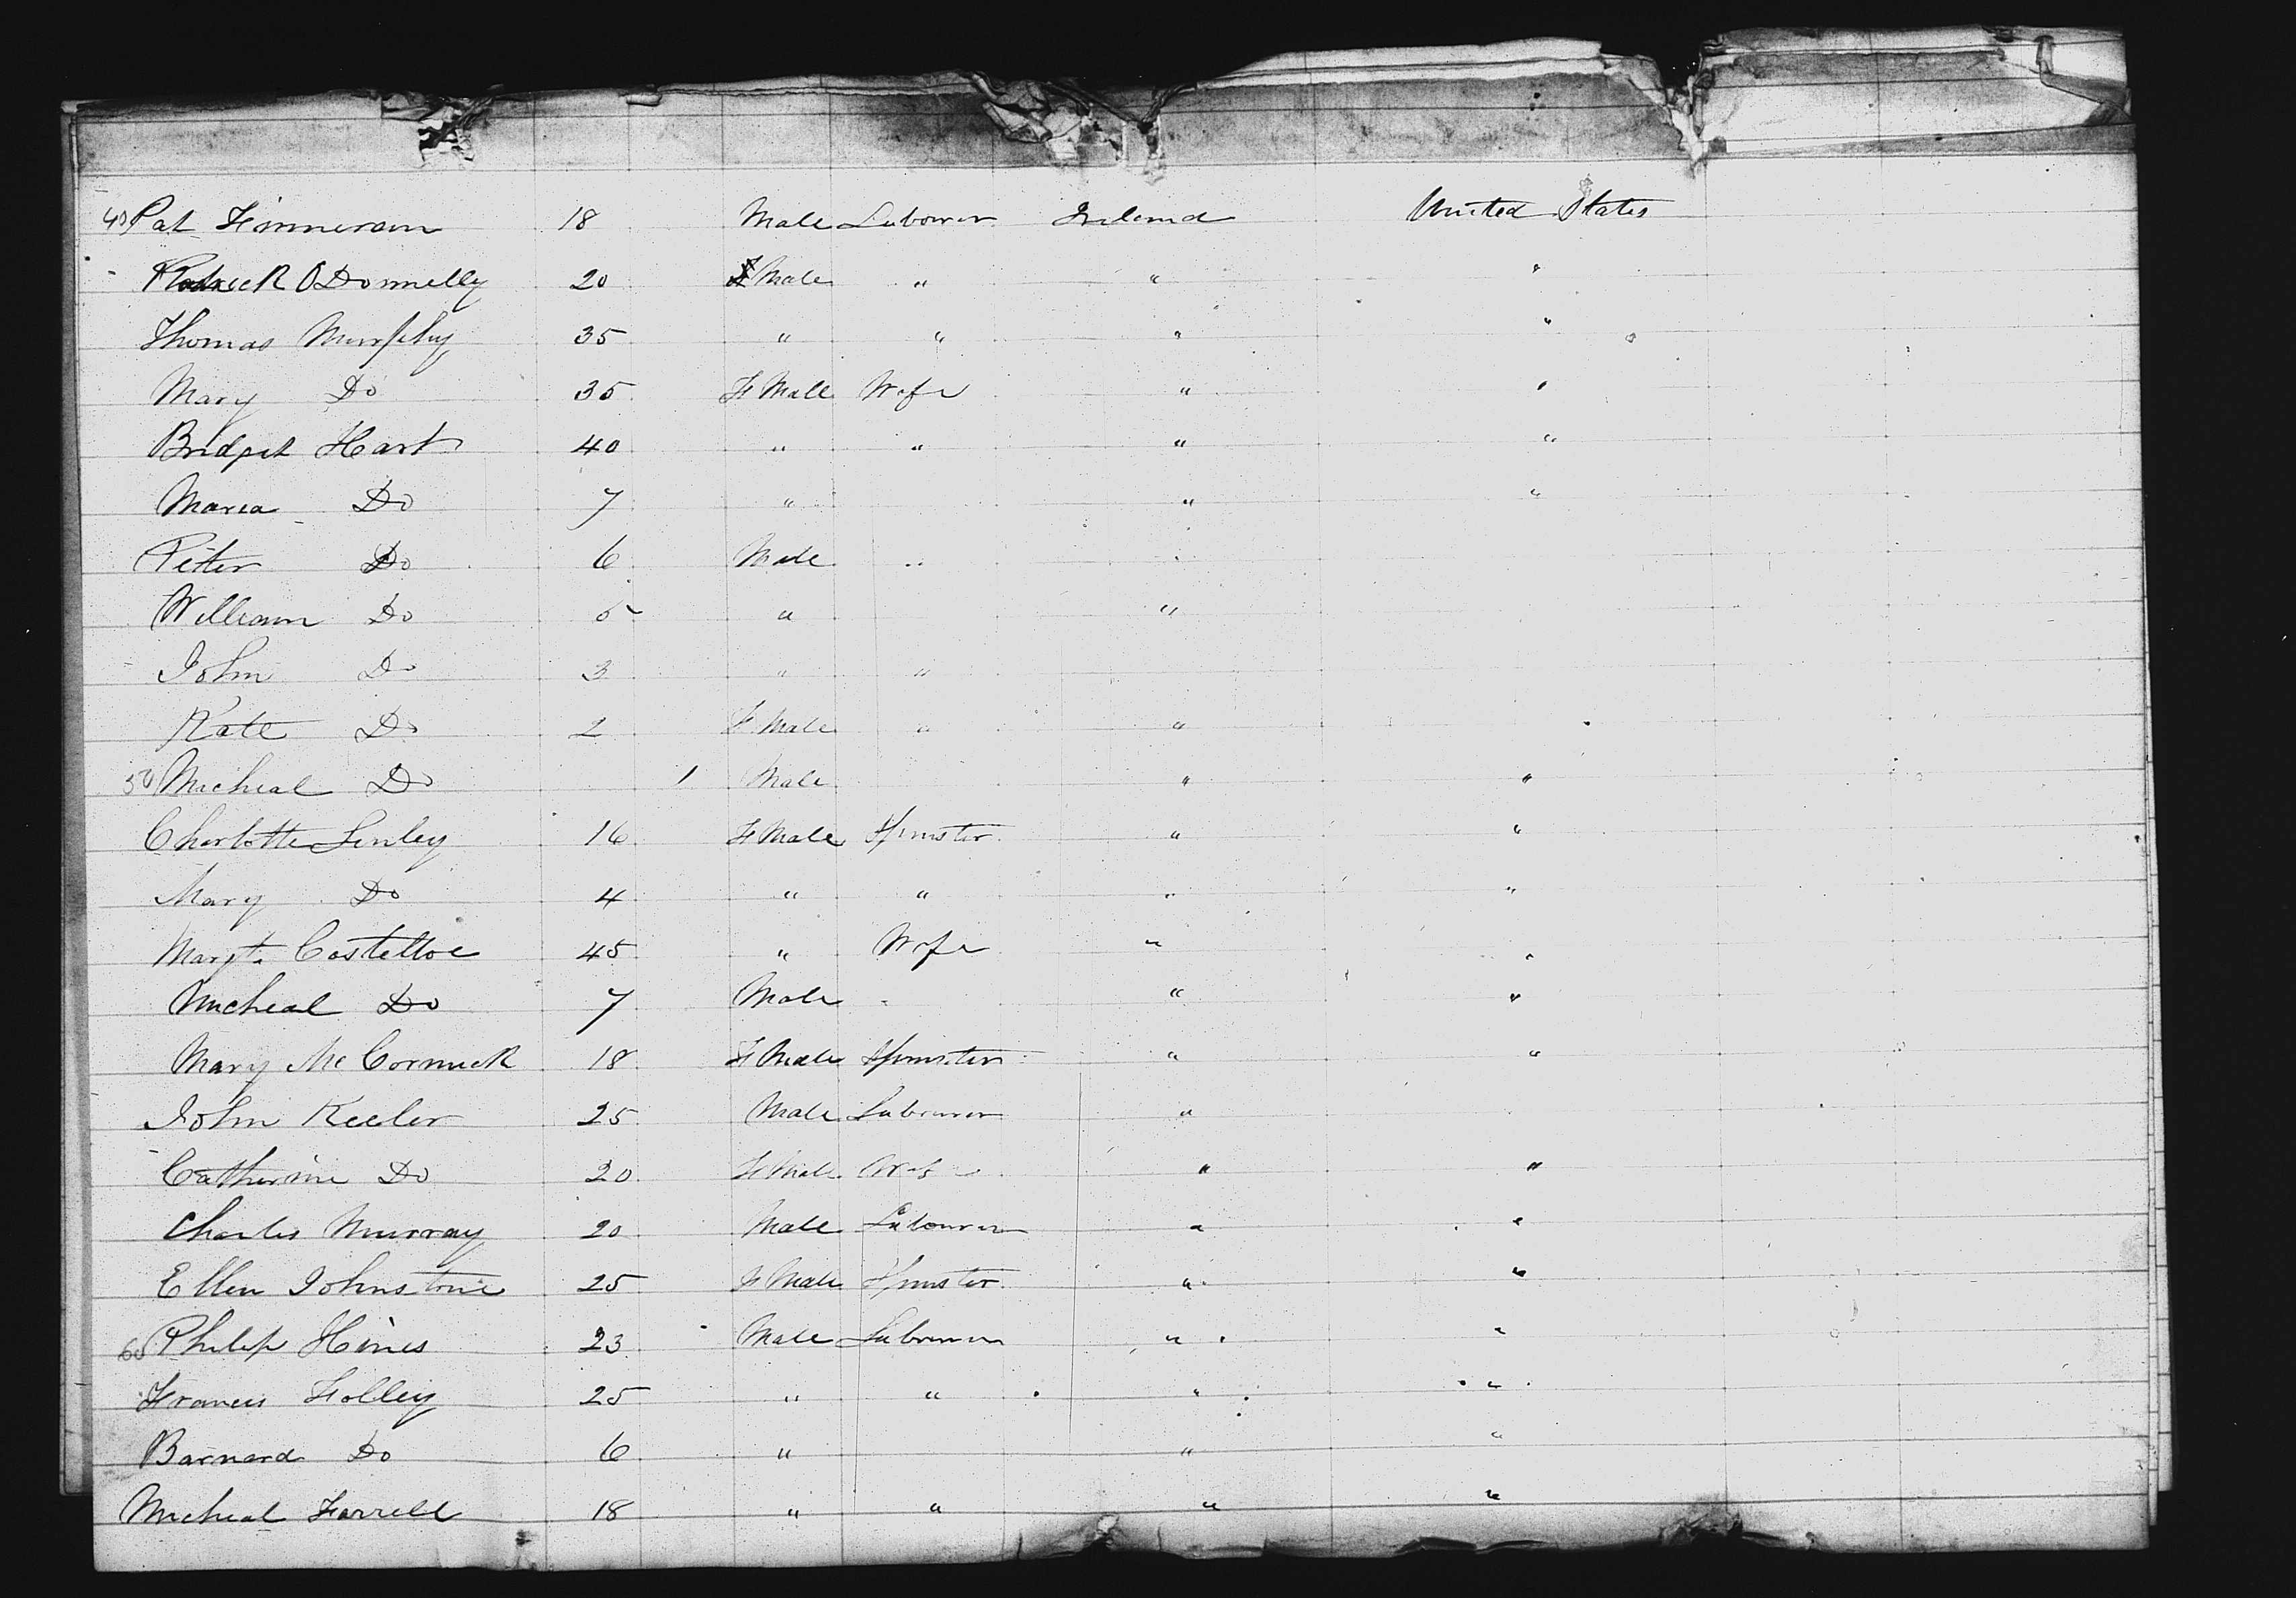 40 Pat Finneran 18 Male Labourer Ireland United States
Patrick O Donnelly 20 Male " " "
Thomas Murphy 35 " " " "
Mary Do 35 F Male Wife " "
Bridget Hart 40 " " " "
Maria Do 7 " " "
Peter Do 6 Male " "
William Do 5 " "
John Do 3 " "
Kate Do 2 F Male " "
50 Micheal Do 1 Male " "
Charlotte Linley 16 F Male Spinster " "
Mary Do 4 " " " "
Margt. Costelloe 45 " Wife " "
Micheal Do 7 Male " " "
Mary Mc Cormick 18 F Male Spinster " "
John Keeler 25 Male Labourer "
Catherine Do 20 F Male Wife " "
Charles Murray 20 Male Labourer " "
Ellen Johnstone 25 F Male Spinster " "
60 Philip Hines 23 Male Labourer " "
Francis Folley 25 " " " "
Barnard Do 6 " " "
Micheal Farrell 18 " " " "